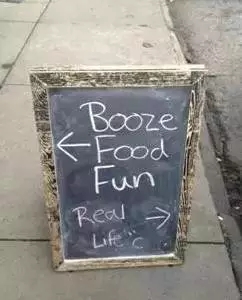 Booze
← Food
Fun
Real →
Life :(